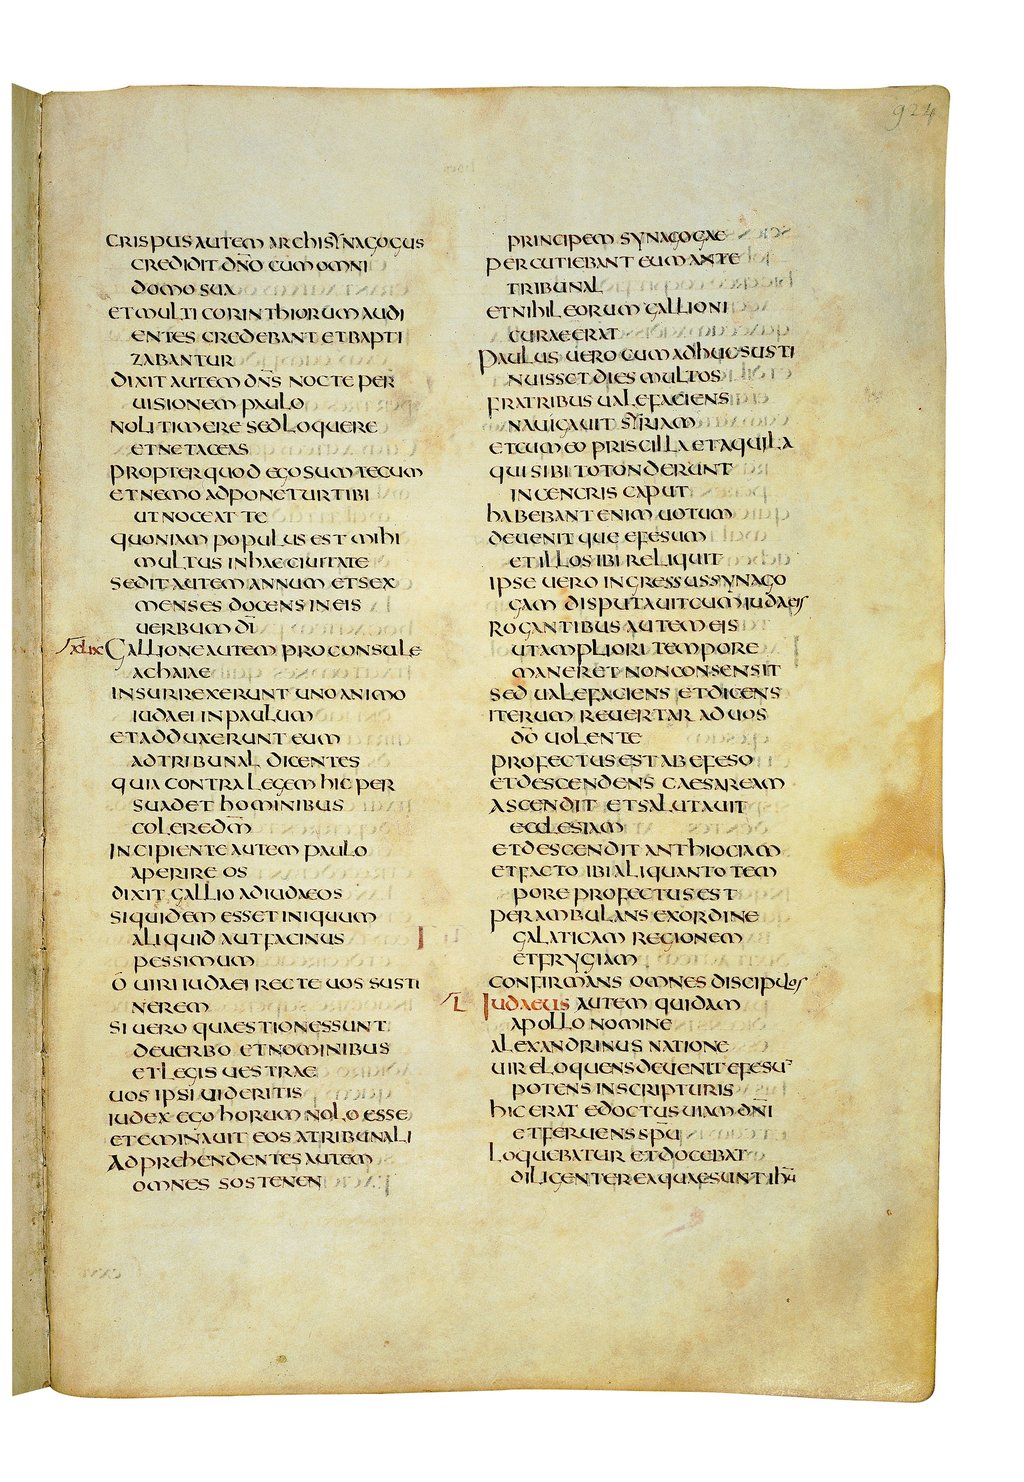 924
CRISPUS AUTEM ARCHISYNAGOGUS
CREDIDIT DN̄O CUM OMNI
DOMO SUA
ET MULTI CORINTHIORUM AUDI
ENTES CREDEBANT ET BAPTI
ZABANTUR
DIXIT AUTEM DN̄S NOCTE PER
UISIONEM PAULO
NOLI TIMERE SED LOQUERE
ET NE TACEAS
PROPTER QUOD EGO SUM TECUM
ET NEMO ADPONETUR TIBI
UT NOCEAT TE
QUONIAM POPULUS EST MIHI
MULTUS IN HAC CIUITATE
SEDIT AUTEM ANNUM ET SEX
MENSES DOCENS IN EIS
UERBUM DĪ
XLIX GALLIONE AUTEM PROCONSULE
ACHAIAE
INSURREXERUNT UNO ANIMO
IUDAEI IN PAULUM
ET ADDUXERUNT EUM
AD TRIBUNAL DICENTES
QUIA CONTRA LEGEM HIC PER
SUADET HOMINIBUS
COLERE DM̄
INCIPIENTE AUTEM PAULO
APERIRE OS
DIXIT GALLIO AD IUDAEOS
SI QUIDEM ESSET INIQUUM
ALIQUID AUT FACINUS
PESSIMUM
O UIRI IUDAEI RECTE UOS SUSTI
NEREM
SI UERO QUAESTIONES SUNT
DE UERBO ET NOMINIBUS
ET LEGIS UESTRAE
UOS IPSI UIDERITIS
IUDEX EGO HORUM NOLO ESSE
ET EMINAUIT EOS A TRIBUNALI
ADPREHENDENTES AUTEM
OMNES SOSTENEN
PRINCIPEM SYNAGOGAE
PERCUTIEBANT EUM ANTE
TRIBUNAL
ET NIHIL EORUM GALLIONI
CURAE ERAT
PAULUS UERO CUM ADHUC SUSTI
NUISSET DIES MULTOS
FRATRIBUS UALEFACIENS
NAUIGAUIT SYRIAM
ET CUM EO PRISCILLA ET AQUILA
QUI SIBI TOTONDERUNT
IN CENCRIS CAPUT
HABEBANT ENIM UOTUM
DEUENITQUE EFESUM
ET ILLOS IBI RELIQUIT
IPSE UERO INGRESSUS SYNAGO
GAM DISPUTAUIT CUM IUDAEIS
ROGANTIBUS AUTEM EIS
UT AMPLIORI TEMPORE
MANERET NON CONSENSIT
SED UALEFACIENS ET DICENS
ITERUM REUERTAR AD UOS
DŌ UOLENTE
PROFECTUS EST AB EFESO
ET DESCENDENS CAESAREAM
ASCENDIT ET SALUTAUIT
ECCLESIAM
ET DESCENDIT ANTHIOCIAM
ET FACTO IBI ALIQUANTO TEM
PORE PROFECTUS EST
PERAMBULANS EX ORDINE
GALATICAM REGIONEM
ET FRYGIAM
CONFIRMANS OMNES DISCIPULOS
L IUDAEUS AUTEM QUIDAM
APOLLO NOMINE
ALEXANDRINUS NATIONE
UIR ELOQUENS DEUENIT EFESŪ
POTENS IN SCRIPTURIS
HIC ERAT EDOCTUS UIAM DN̄I
ET FERUENS SPŪ
LOQUEBATUR ET DOCEBAT
DILIGENTER EA QUAE SUNT IHŪ